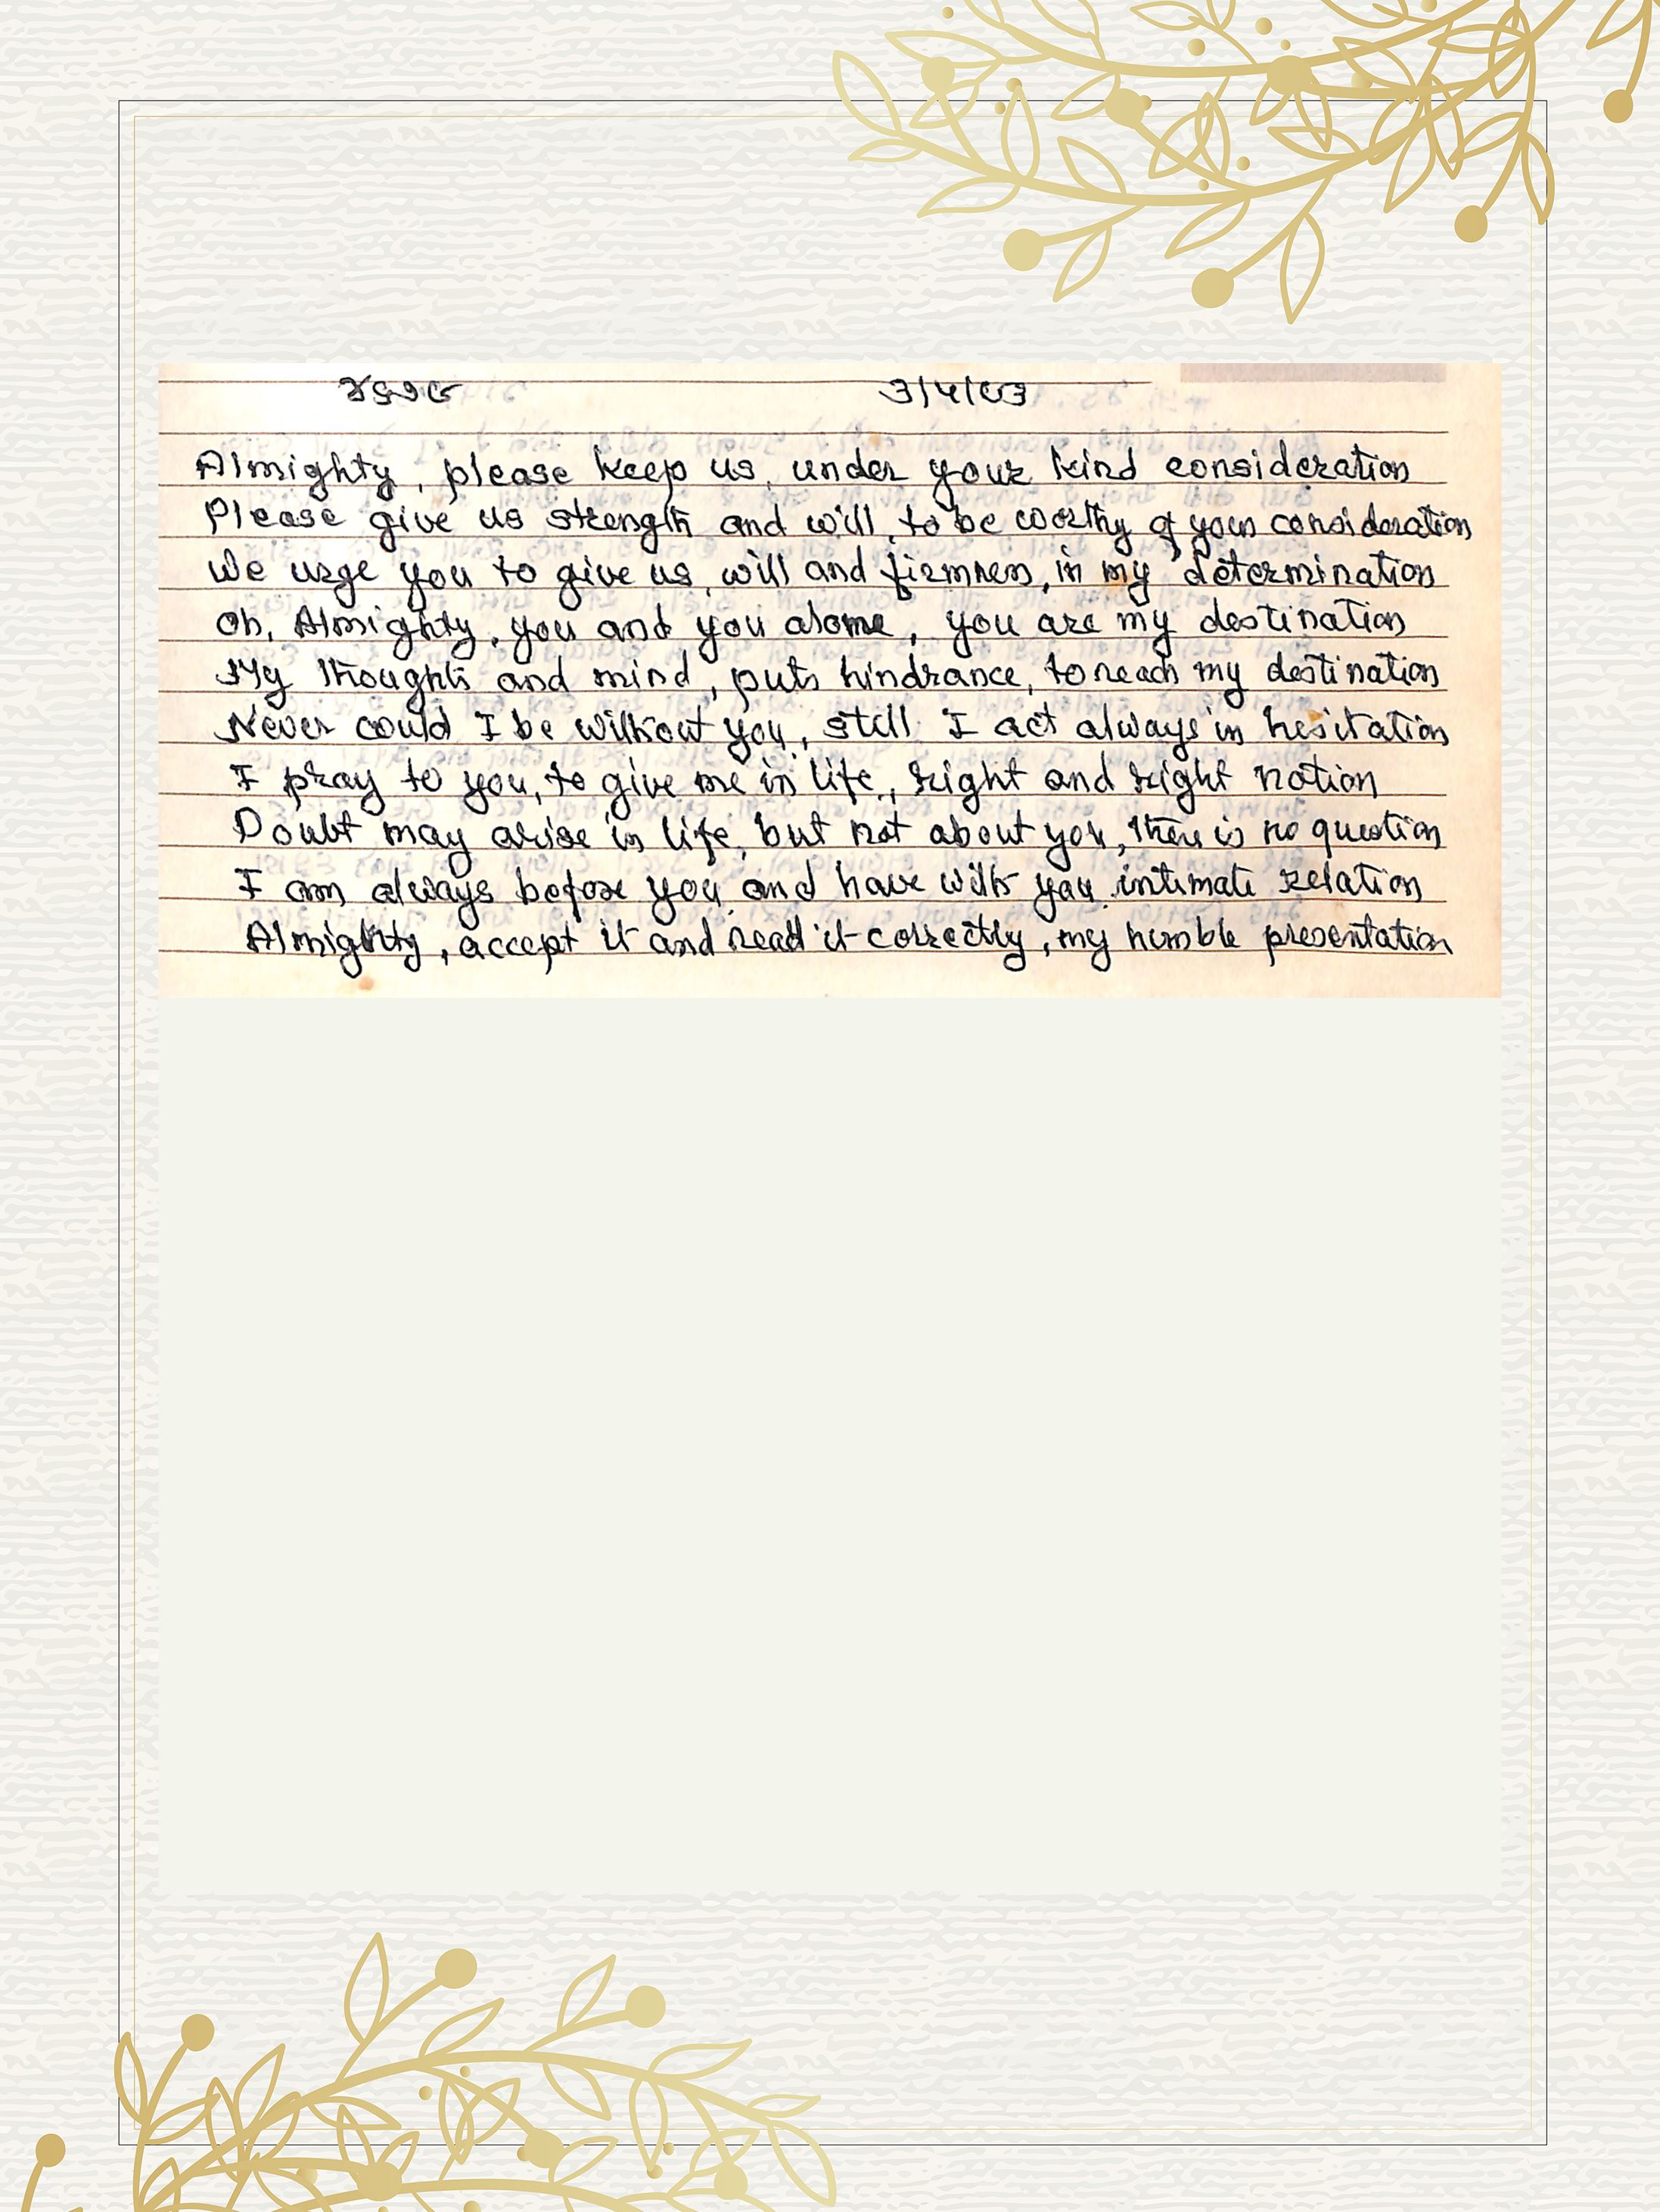 3/4/03
Almighty, please keep us, under your kind consideration
Please give us strength and will, to be worthy of your consideration
We urge you to give us, will and firmness, in my determination
Oh, Almighty, you and you alone, you are my destination
My thoughts and mind, puts hindrance, to reach my destination
Never could I be without you, still I act always in hesitation
I pray to you, to give me in life, right and right notion
Doubt may arise in life, but not about you, there is no question
I am always before you, and have with you, intimate relation
Almighty, accept it and read it correctly, my humble presentation